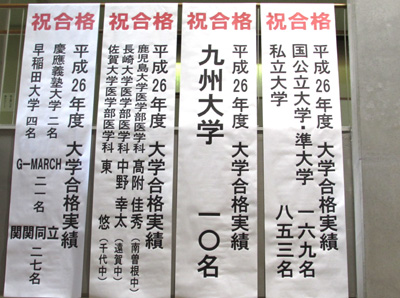 祝合格
平成26年度 大学合格実績
国公立大学・準大学 一六九名
私立大学 八五三名
祝合格
平成26年度 大学合格実績
九州大学 一〇名
祝合格
平成26年度 大学合格実績
鹿児島大学医学部医学科 髙附 佳秀(南曽根中)
長崎大学医学部医学科 中野 幸太(遠賀中)
佐賀大学医学部医学科 東 悠(千代中)
祝合格
平成26年度 大学合格実績
慶應義塾大学 二名
早稲田大学 四名
G-MARCH 二一名
関関同立 二七名